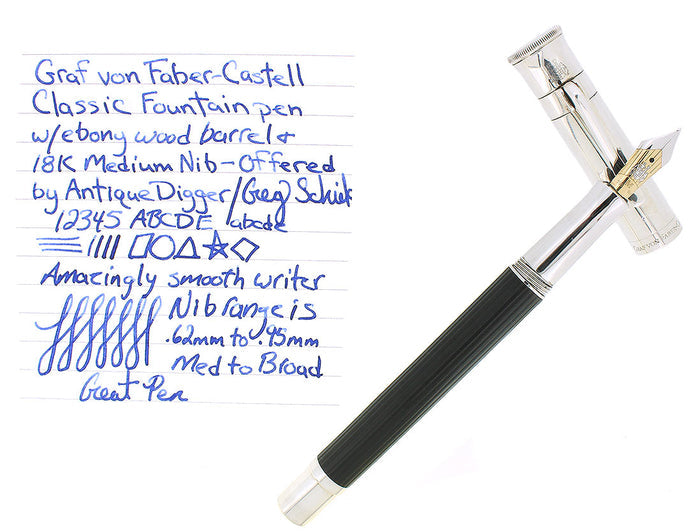 Graf von Faber-Castell
Classic Fountain pen
w/ebony wood barrel &
18K Medium Nib - Offered
by Antique Digger/Greg
12345 ABCDE abcde
Amazingly smooth writer
Nib range is
.62mm to .95mm
Med to Broad
Great Pen